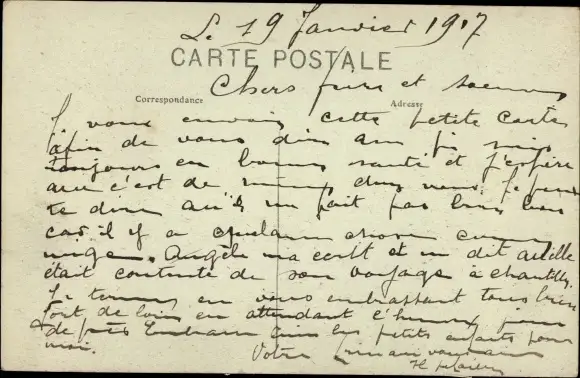 Le 19 Janvier 1917
CARTE POSTALE
Chers frère et soeur
Correspondance
Adresse
Je vous envois cette petite carte
afin de vous dire que je suis
toujours en bonne santé et j'espère
que c'est de même chez vous. Je peux
te dire qu'il ne fait pas bien bon
car il y a quelque chose comme
neige. Angèle m'a écrit et me dit qu'elle
était contente de son voyage à chantilly.
Je termine en vous embrassant tous bien
fort de loin en attendant l'heureux jour
de près Embrasse bien les petits enfants pour
moi.
Votre